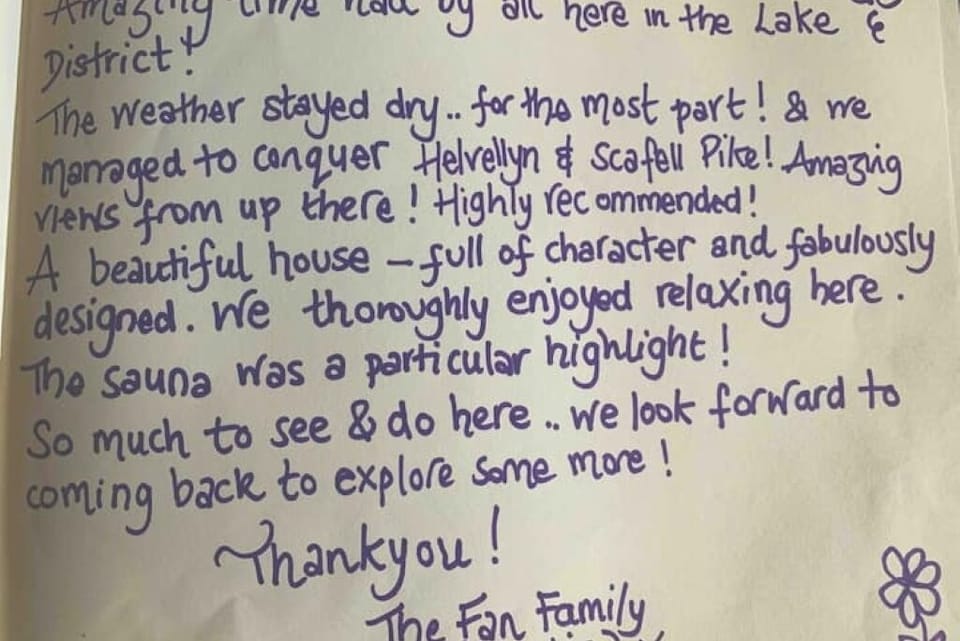 Amazing time had by all here in the Lake
District!
The weather stayed dry.. for the most part! & we
managed to conquer Helvellyn & Scafell Pike! Amazing
views from up there! Highly recommended!
A beautiful house – full of character and fabulously
designed. We thoroughly enjoyed relaxing here.
The sauna was a particular highlight!
So much to see & do here.. we look forward to
coming back to explore some more!
Thankyou!
The Fan Family